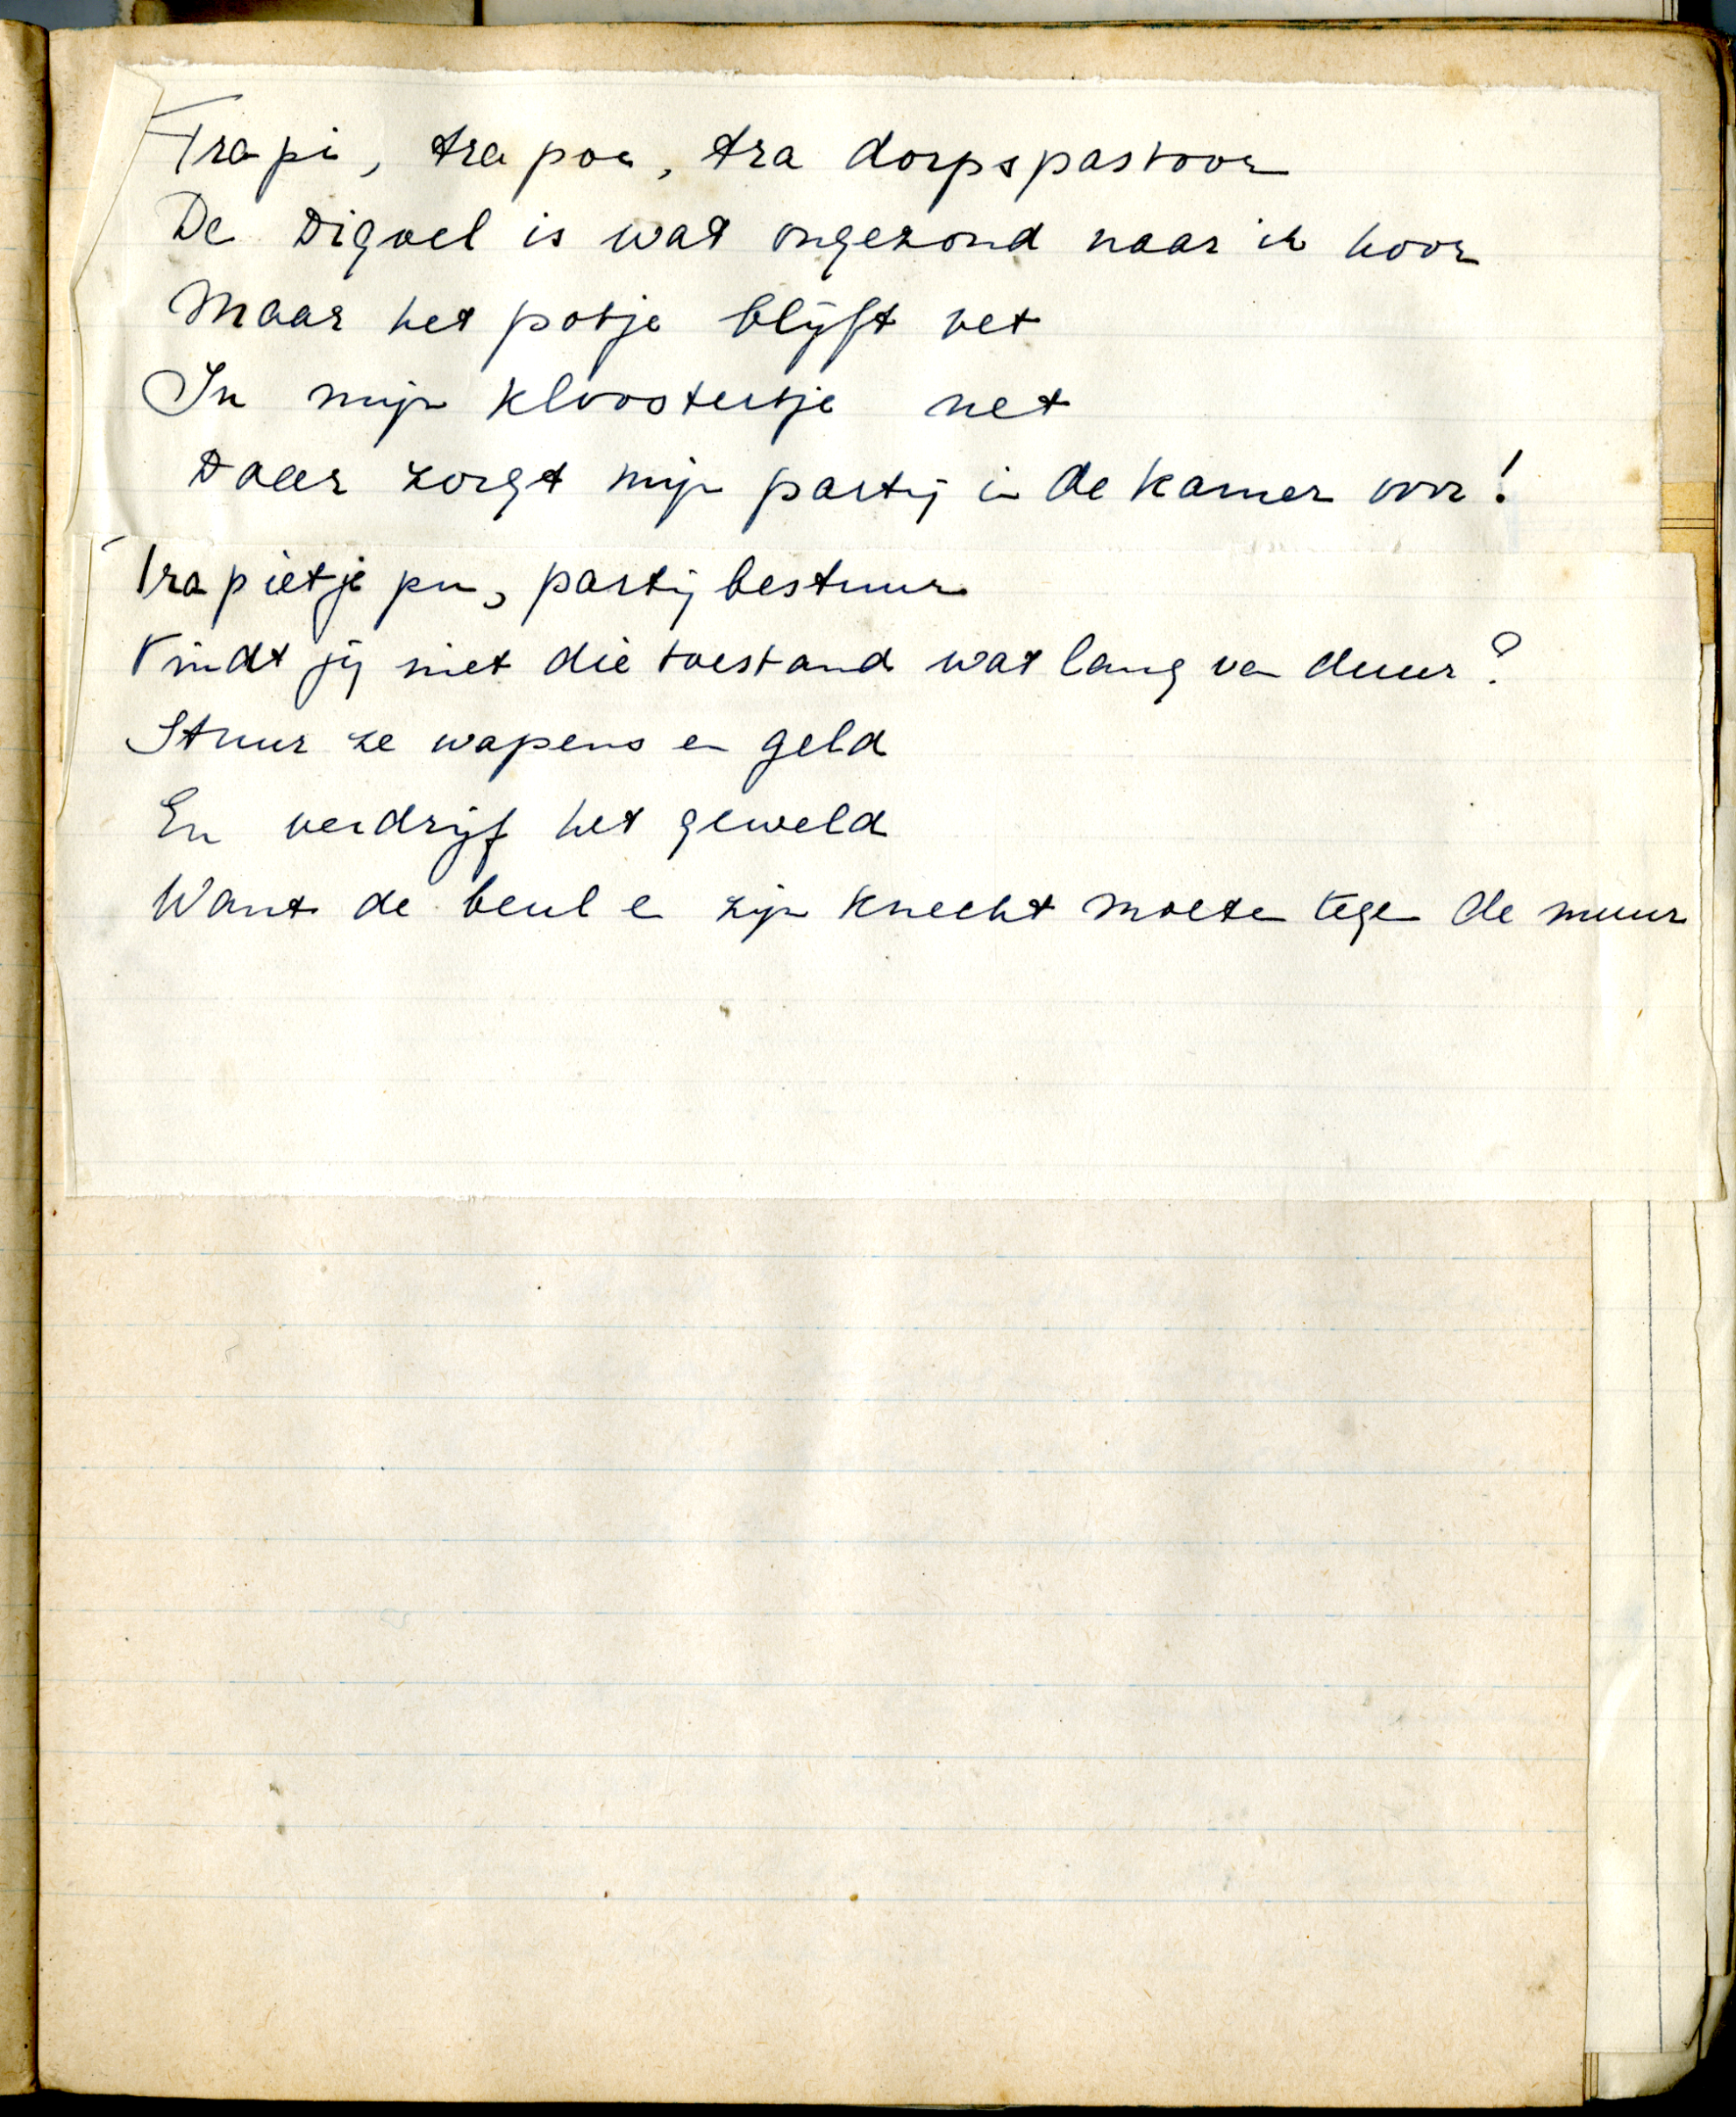 Tra pi, tra poe, tra dorpspastoor
De Digoel is wat ongezond naar ik hoor
Maar het potje blijft vet
In mijn kloostertje net
Daar zorgt mijn partij in de kamer voor!
Tra pietje pu, partijbestuur
Vindt jij niet die toestand wat lang van duur?
Stuur ze wapens en geld
En verdrijf het geweld
Want de beul en zijn knecht moeten tegen de muur